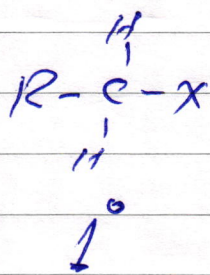 H
R-C-X
H
1°